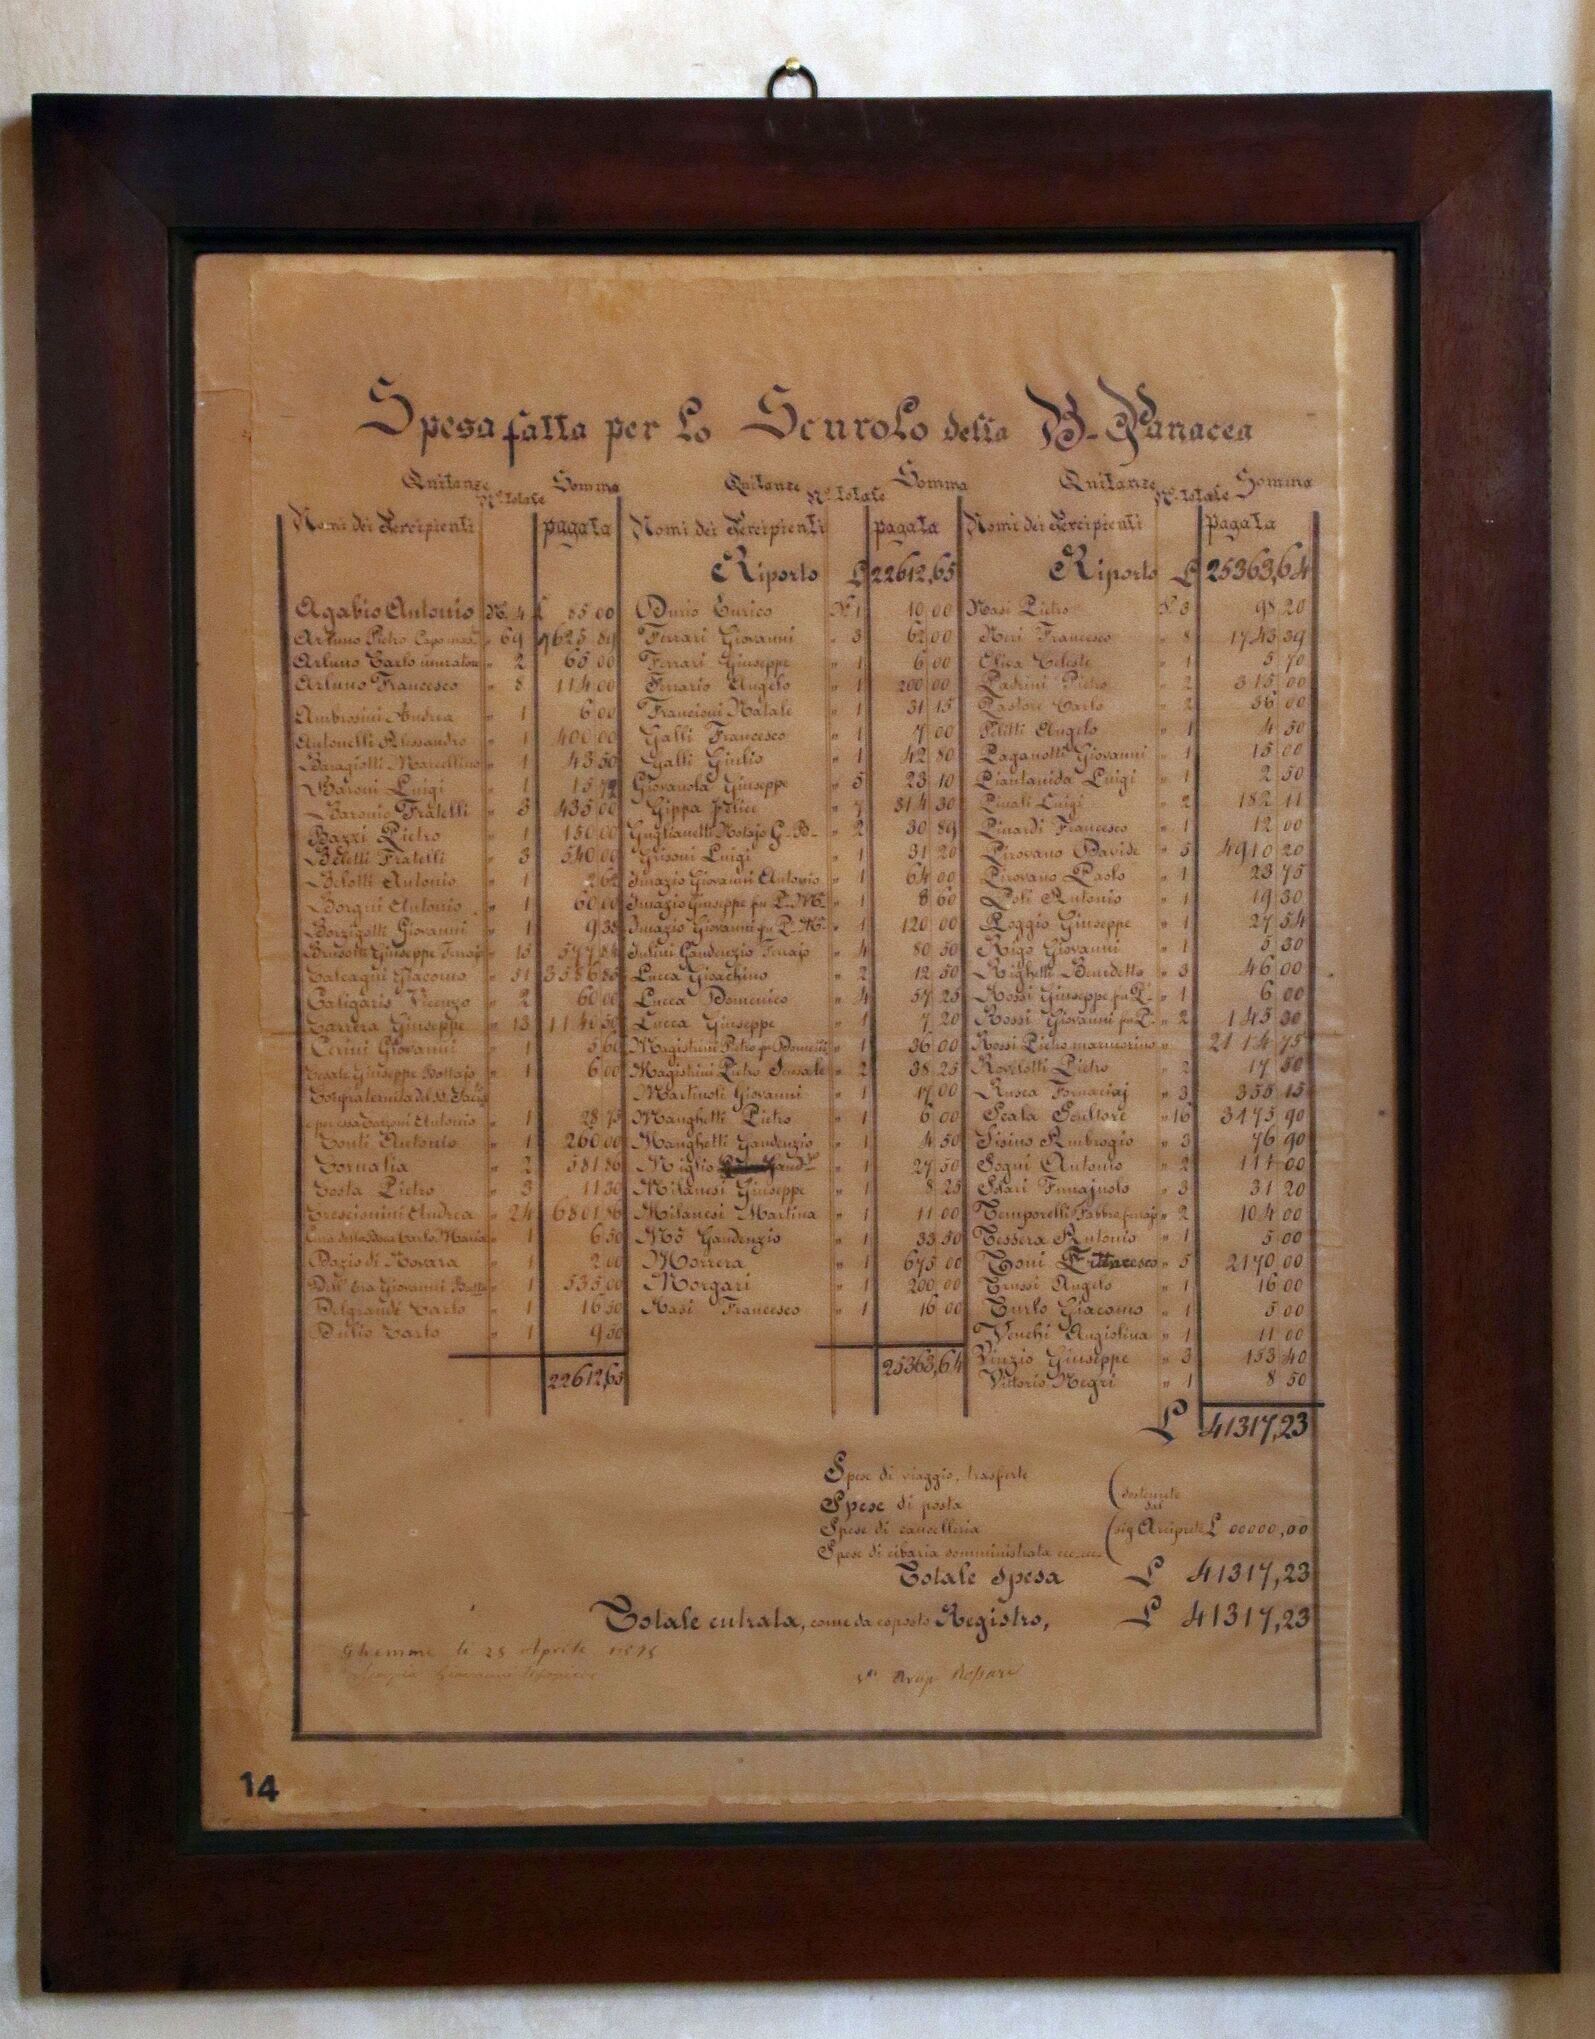 Spesa fatta per Lo Scurolo della B. Panacea
Quitanze Somma Quitanze Somma Quitanze Somma
Nomi dei Percipienti N.° totale pagata
Agabio Antonio N. 4 L 85 00
Arluno Pietro Capo mas. " 69 7625 89
Arluno Carlo " 2 65 00
Arluno Francesco " 8 114 00
Ambrosini Andrea " 1 6 00
Antonelli Alessandro " 1 400 00
Baragiotti Marcellino " 1 43 50
Baroni Luigi " 1 15
Baronio Fratelli " 3 435 00
Bazzi Pietro " 1 150 00
Beletti Fratelli " 3 540 00
Belotti Antonio " 1 2 62
Borgni Antonio " 1 60 00
Borzigotti Giovanni " 1 9 38
Brusotti Giuseppe Ferrajo " 15 577 84
Calcagni Giacomo " 51 3586 86
Caligaris Vicenzo " 2 60 00
Carrera Giuseppe " 13 1141 50
Cerini Giovanni " 1 5 60
Cesale Giuseppe Bottajo " 1 6 00
Confraternita del SS.
e per essa Antonio " 1 28 75
Conti Antonio " 1 260 00
Cornalia " 2 581 86
Costa Pietro " 3 11 30
Crescionini Andrea " 24 6801
Carlo Maria " 1 6 50
Dazio di Novara " 1 2 00
Dell' Era Giovanni Batta " 1 535 00
Delgrande Carlo " 1 16 50
Dulio Carlo " 1 9 50
22612,65
Nomi dei Percipienti N.° totale pagata
Riporto L 22612,65
Durio Enrico N.° 1 10 00
Ferrari Giovanni " 3 62 00
Ferrari Giuseppe " 1 6 00
Ferrario Angelo " 1 200 00
Francioni Natale " 1 31 15
Galli Francesco " 1 7 00
Galli Giulio " 1 42 80
Giovanola Giuseppe " 5 23 10
Gippa Felice " 7 314 30
Guglianetti Notajo G. B. " 2 30 89
Grisoni Luigi " 1 31 20
Imazio Giovanni Antonio " 1 64 00
Imazio Giuseppe fu P. M. " 1 8 60
Imazio Giovanni fu P. M. " 1 120 00
Julini Gaudenzio Ferrajo " 4 80 50
Lucca Gioachino " 2 12 50
Lucca Domenico " 4 57 25
Lucca Giuseppe " 1 7 20
Magistrini Pietro fu Domenico " 1 36 00
Magistrini Pietro Sensale " 2 38 25
Martinoli Giovanni " 1 17 00
Manghetti Pietro " 1 6 00
Manghetti Gaudenzio " 1 4 50
Miglio " 1 27 50
Milanesi Giuseppe " 1 8 25
Milanesi Martina " 1 11 00
Mò Gaudenzio " 1 33 50
Morrera " 1 675 00
Morgari " 1 200 00
Nasi Francesco " 1 16 00
25363,64
Nomi dei Percipienti N.° totale pagata
Riporto L 25363,64
Nasi Pietro N.° 3 98 20
Neri Francesco " 8 1743 39
Oliva Celeste " 1 5 70
Padrini Pietro " 2 315 00
Pastore Carlo " 2 36 00
Pilitti Angelo " 1 4 50
Paganotti Giovanni " 1 15 00
Piantanida Luigi " 1 2 50
Pinali Luigi " 2 182 11
Pinardi Francesco " 1 12 00
Pirovano Davide " 5 4910 20
Pirovano Paolo " 1 23 75
Poli Antonio " 1 19 30
Roggio Giuseppe " 1 27 54
Rigo Giovanni " 1 5 30
Righetti Benedetto " 3 46 00
Rossi Giuseppe fu P. " 1 6 00
Rossi Giovanni fu P. " 2 145 30
Rossi Pietro marmorino " 2114 75
Rovelotti Pietro " 2 17 50
Rusca Fornaciaj " 3 355 15
Scala Scultore " 16 3173 90
Sisino Ambrogio " 3 76 90
Sogni Antonio " 2 111 00
Sdari " 3 31 20
Temporelli Fabbro ferrajo " 2 104 00
Tessera Antonio " 1 5 00
Toni Francesco " 5 2170 00
Trussi Angelo " 1 16 00
Turlo Giacomo " 1 5 00
Venchi Angiolina " 1 11 00
Vinzio Giuseppe " 3 153 40
Vittorio Negri " 1 8 50
L 41317,23
Spese di viaggio, trasferte
Spese di posta
Spese di cancelleria
Spese di cibaria somministrata ecc. ecc.
sostenute
dal
sig. Arciprete L 00000,00
Totale spesa L 41317,23
Totale entrata, come da esposto Registro, L 41317,23
Ghemme le 25 Aprile
14